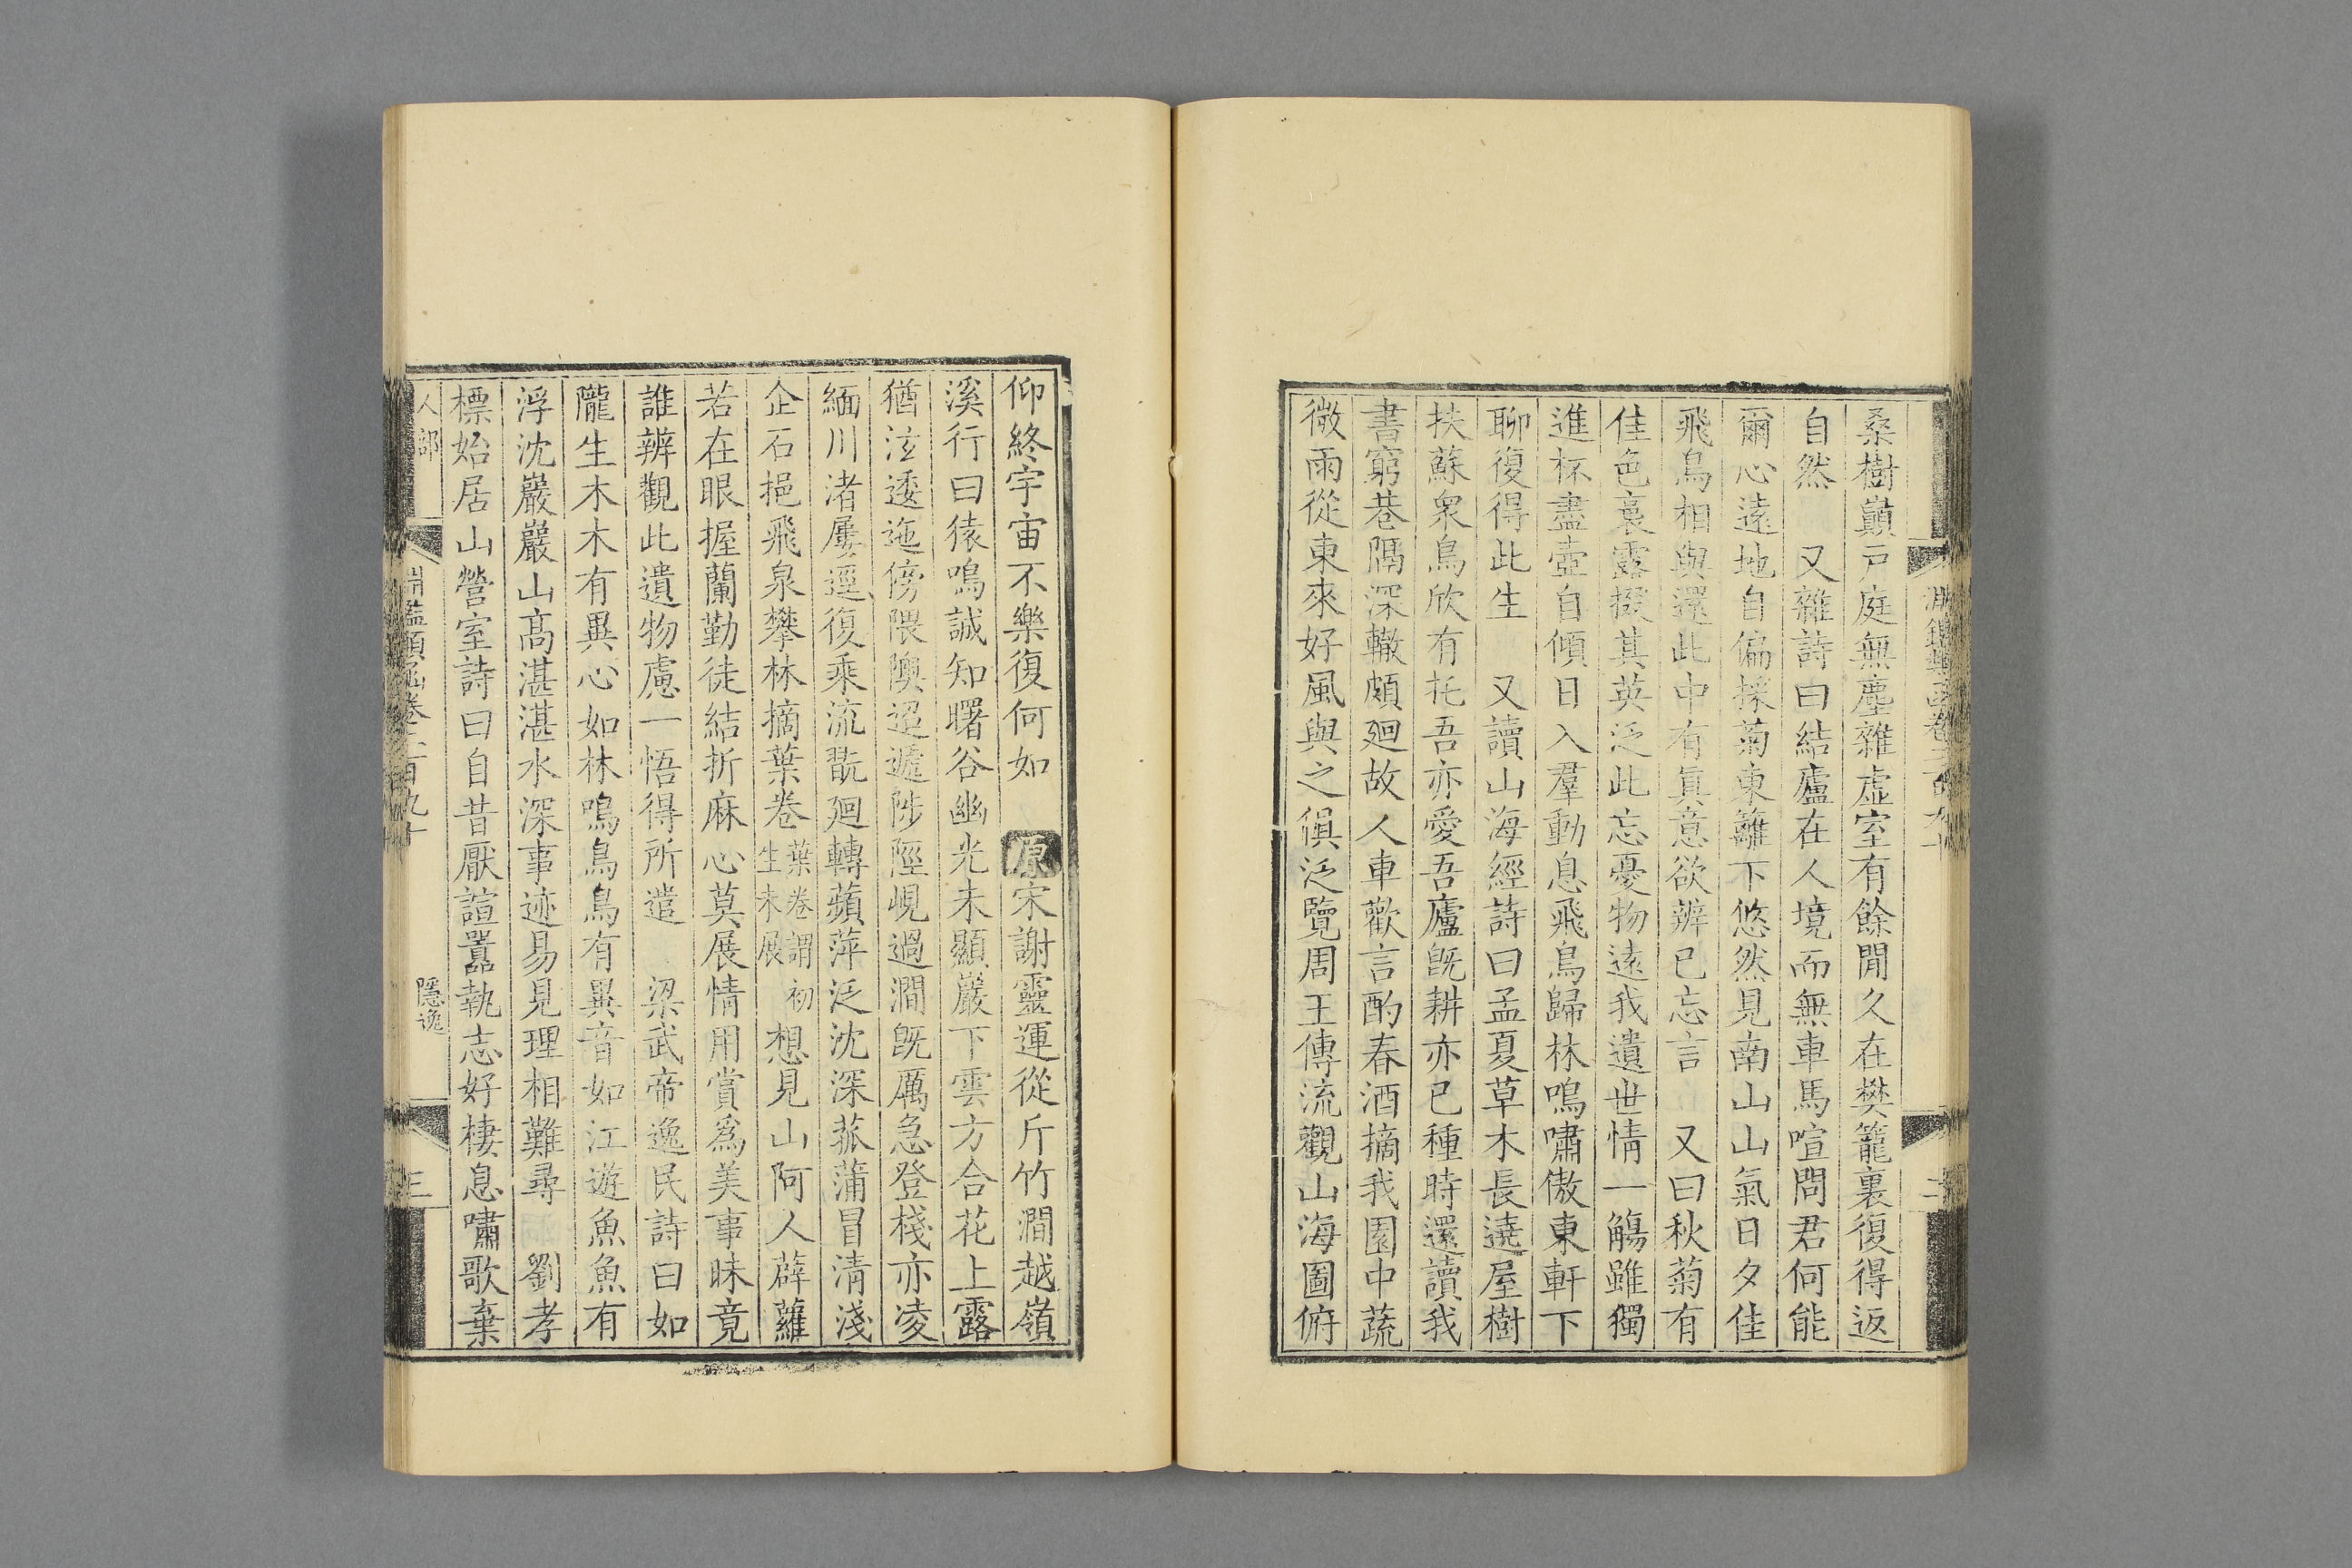 桑樹巔戸庭無塵雜虛室有餘閒久在樊籠裏復得返
自然　又雜詩曰結廬在人境而無車馬喧問君何能
爾心遠地自偏採菊東籬下悠然見南山山氣日夕佳
飛鳥相與還此中有眞意欲辨已忘言　又曰秋菊有
佳色裛露掇其英泛此忘憂物遠我遺世情一觴雖獨
進杯盡壺自傾日入羣動息飛鳥歸林鳴嘯傲東軒下
聊復得此生　又讀山海經詩曰孟夏草木長遶屋樹
扶蘇衆鳥欣有托吾亦愛吾廬旣耕亦已種時還讀我
書窮巷隔深轍頗廻故人車歡言酌春酒摘我園中蔬
微雨從東來好風與之俱泛覽周王傳流觀山海圖俯
仰終宇宙不樂復何如　原宋謝靈運從斤竹澗越嶺
溪行曰猿鳴誠知曙谷幽光未顯巖下雲方合花上露
猶泫逶迤傍隈隩迢遞陟陘峴過澗旣厲急登棧亦凌
緬川渚屢逕復乘流翫廻轉蘋萍泛沈深菰蒲冒清淺
企石挹飛泉攀林摘葉卷葉卷謂初生未展想見山阿人薜蘿
若在眼握蘭勤徒結折麻心莫展情用賞爲美事昧竟
誰辨觀此遺物慮一悟得所遣　梁武帝逸民詩曰如
隴生木木有異心如林鳴鳥鳥有異音如江遊魚魚有
浮沈巖巖山高湛湛水深事迹易見理相難尋　劉孝
標始居山營室詩曰自昔厭諠囂執志好棲息嘯歌棄
人部
淵鑑類函卷二百九十
隱逸
三